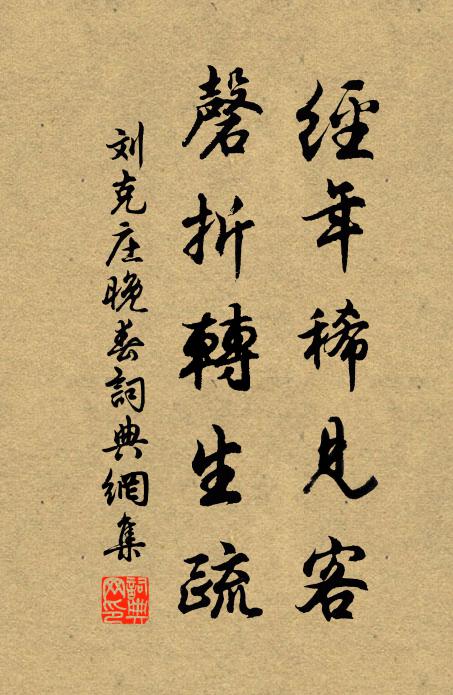 經年稀見客
磬折轉生疏
刘克庄晚春詞典網集
詞典网印